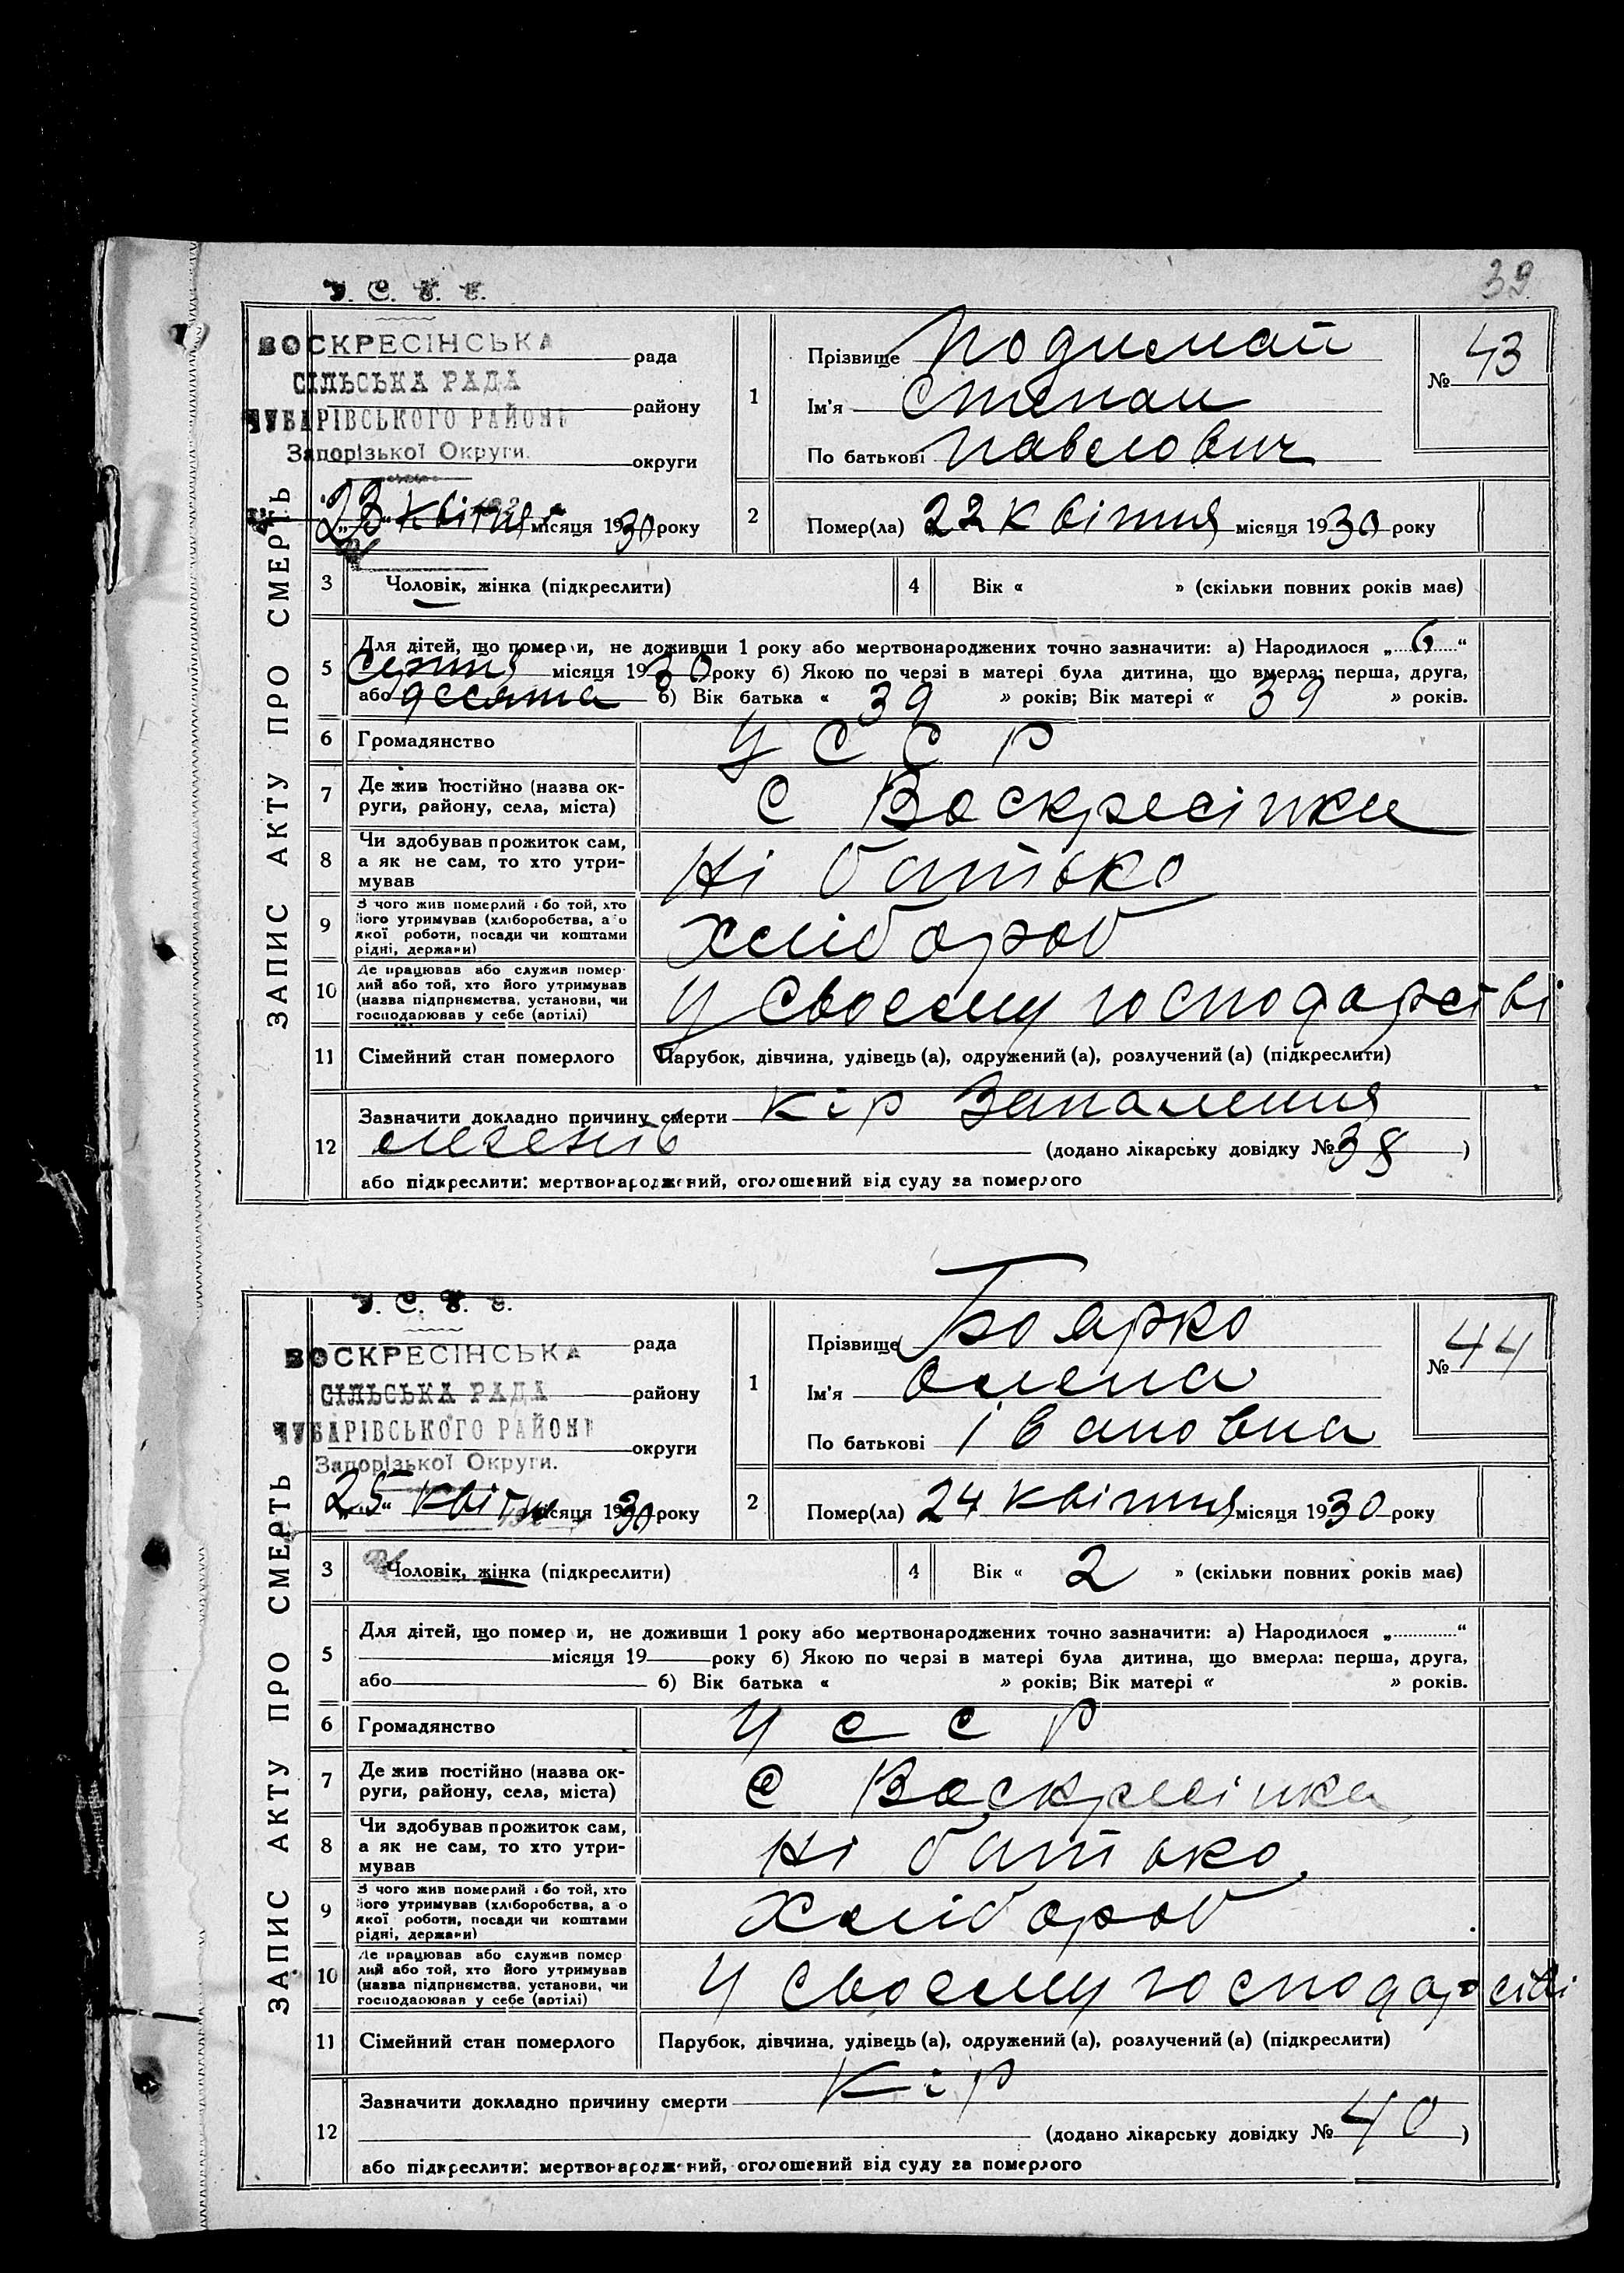 39
У. С. Р. Р.
ВОСКРЕСІНСЬКА рада
СІЛЬСЬКА РАДА
ЧУБАРІВСЬКОГО РАЙОНУ району
Запорізької Округи. округи
„23“ Квітня місяця 1930 року
ЗАПИС АКТУ ПРО СМЕРТЬ
1 Прізвище Подимай
Ім'я Степан
По батькові Павлович
№ 43
2 Помер(ла) 22 Квітня місяця 1930 року
3 Чоловік, жінка (підкреслити)
4 Вік « » (скільки повних років має)
5 Для дітей, що померли, не доживши 1 року або мертвонароджених точно зазначити: а) Народилося „6“
Серпня місяця 1930 року б) Якою по черзі в матері була дитина, що вмерла: перша, друга,
або десята б) Вік батька « 39 » років; Вік матері « 39 » років.
6 Громадянство У С С Р
7 Де жив постійно (назва ок-
руги, району, села, міста) С Воскресінки
8 Чи здобував прожиток сам,
а як не сам, то хто утри-
мував Ні батько
9 З чого жив померлий або той, хто
його утримував (хліборобства, або
якої роботи, посади чи коштами
рідні, держави) Хлібороб
10 Де працював або служив помер-
лий або той, хто його утримував
(назва підприємства, установи, чи
господарював у себе (артілі) У своєму господарстві
11 Сімейний стан померлого Парубок, дівчина, удівець (а), одружений (а), розлучений (а) (підкреслити)
12 Зазначити докладно причину смерти Кір Запалення
легенів (додано лікарську довідку № 38)
або підкреслити: мертвонароджений, оголошений від суду за померлого
У. С. Р. Р.
ВОСКРЕСІНСЬКА рада
СІЛЬСЬКА РАДА району
ЧУБАРІВСЬКОГО РАЙОНУ
округи
Запорізької Округи.
„25“ Квітня місяця 1930 року
ЗАПИС АКТУ ПРО СМЕРТЬ
1 Прізвище Боярко
Ім'я Олена
По батькові Івановна
№ 44
2 Помер(ла) 24 Квітня місяця 1930 року
3 Чоловік, жінка (підкреслити)
4 Вік « 2 » (скільки повних років має)
5 Для дітей, що померли, не доживши 1 року або мертвонароджених точно зазначити: а) Народилося „ “
місяця 19 року б) Якою по черзі в матері була дитина, що вмерла: перша, друга,
або б) Вік батька « » років; Вік матері « » років.
6 Громадянство У С С Р
7 Де жив постійно (назва ок-
руги, району, села, міста) С Воскресінки
8 Чи здобував прожиток сам,
а як не сам, то хто утри-
мував Ні батько
9 З чого жив померлий або той, хто
його утримував (хліборобства, або
якої роботи, посади чи коштами
рідні, держави) Хлібороб
10 Де працював або служив помер-
лий або той, хто його утримував
(назва підприємства, установи, чи
господарював у себе (артілі) У своєму господарстві
11 Сімейний стан померлого Парубок, дівчина, удівець (а), одружений (а), розлучений (а) (підкреслити)
12 Зазначити докладно причину смерти Кір
(додано лікарську довідку № 40)
або підкреслити: мертвонароджений, оголошений від суду за померлого